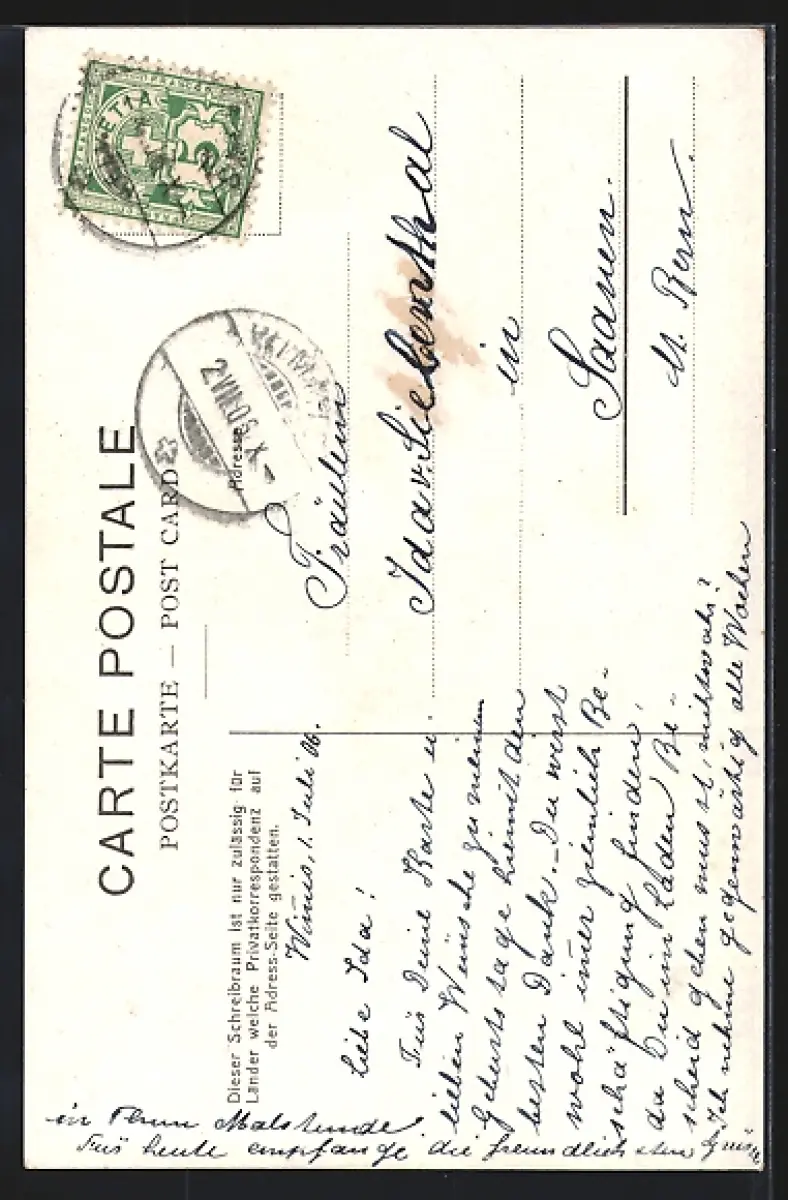 CARTE POSTALE
POSTKARTE — POST CARD
Dieser Schreibraum ist nur zulässig für
Länder welche Privatkorrespondenz auf
der Adress-Seite gestatten.
Adresse
HELVETIA
FRANCO
5
2.VII.06.X
Fräulein
Ida v. Siebenthal
in
Saanen.
Kt. Bern.
Wimis, 1. Juli 06.
Liebe Ida!
Für Deine Karte u.
lieben Wünsche zu meinem
Geburtstage hiermit den
besten Dank. – Du wirst
wohl im̄er ziemlich Be-
schäftigung finden,
da Du im Laden Be-
scheid geben musst, nichtwahr?
Ich nehme gegenwärtig alle Wochen
in Thun Malstunde
Für heute empfange die freundlichsten Grüsse